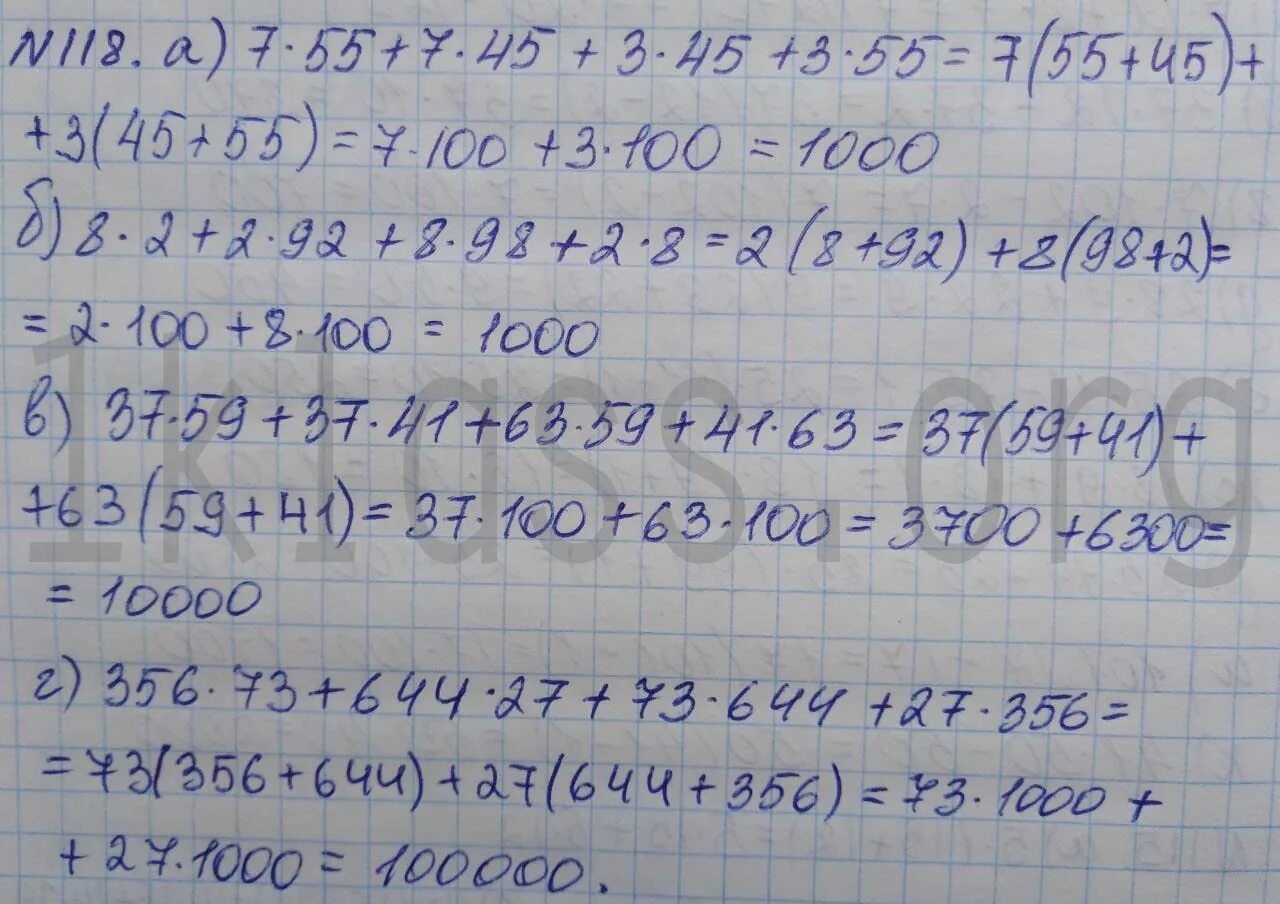 N118. а) 7·55+7·45 + 3·45 +3·55= 7(55+45)+
+3(45+55)=7·100 +3·100 = 1000
б) 8·2+2·92 +8·98+2·8=2(8+92) +8(98+2)=
= 2·100 +8·100 = 1000
в) 37·59+37·41+63·59+41·63=37(59+41)+
+63(59+41)=37·100+63·100=3700+6300=
= 10000
г) 356·73+644·27+73·644 +27·356=
=73(356+644)+27(644+356)=73·1000 +
+27·1000= 100000.
1klass.org